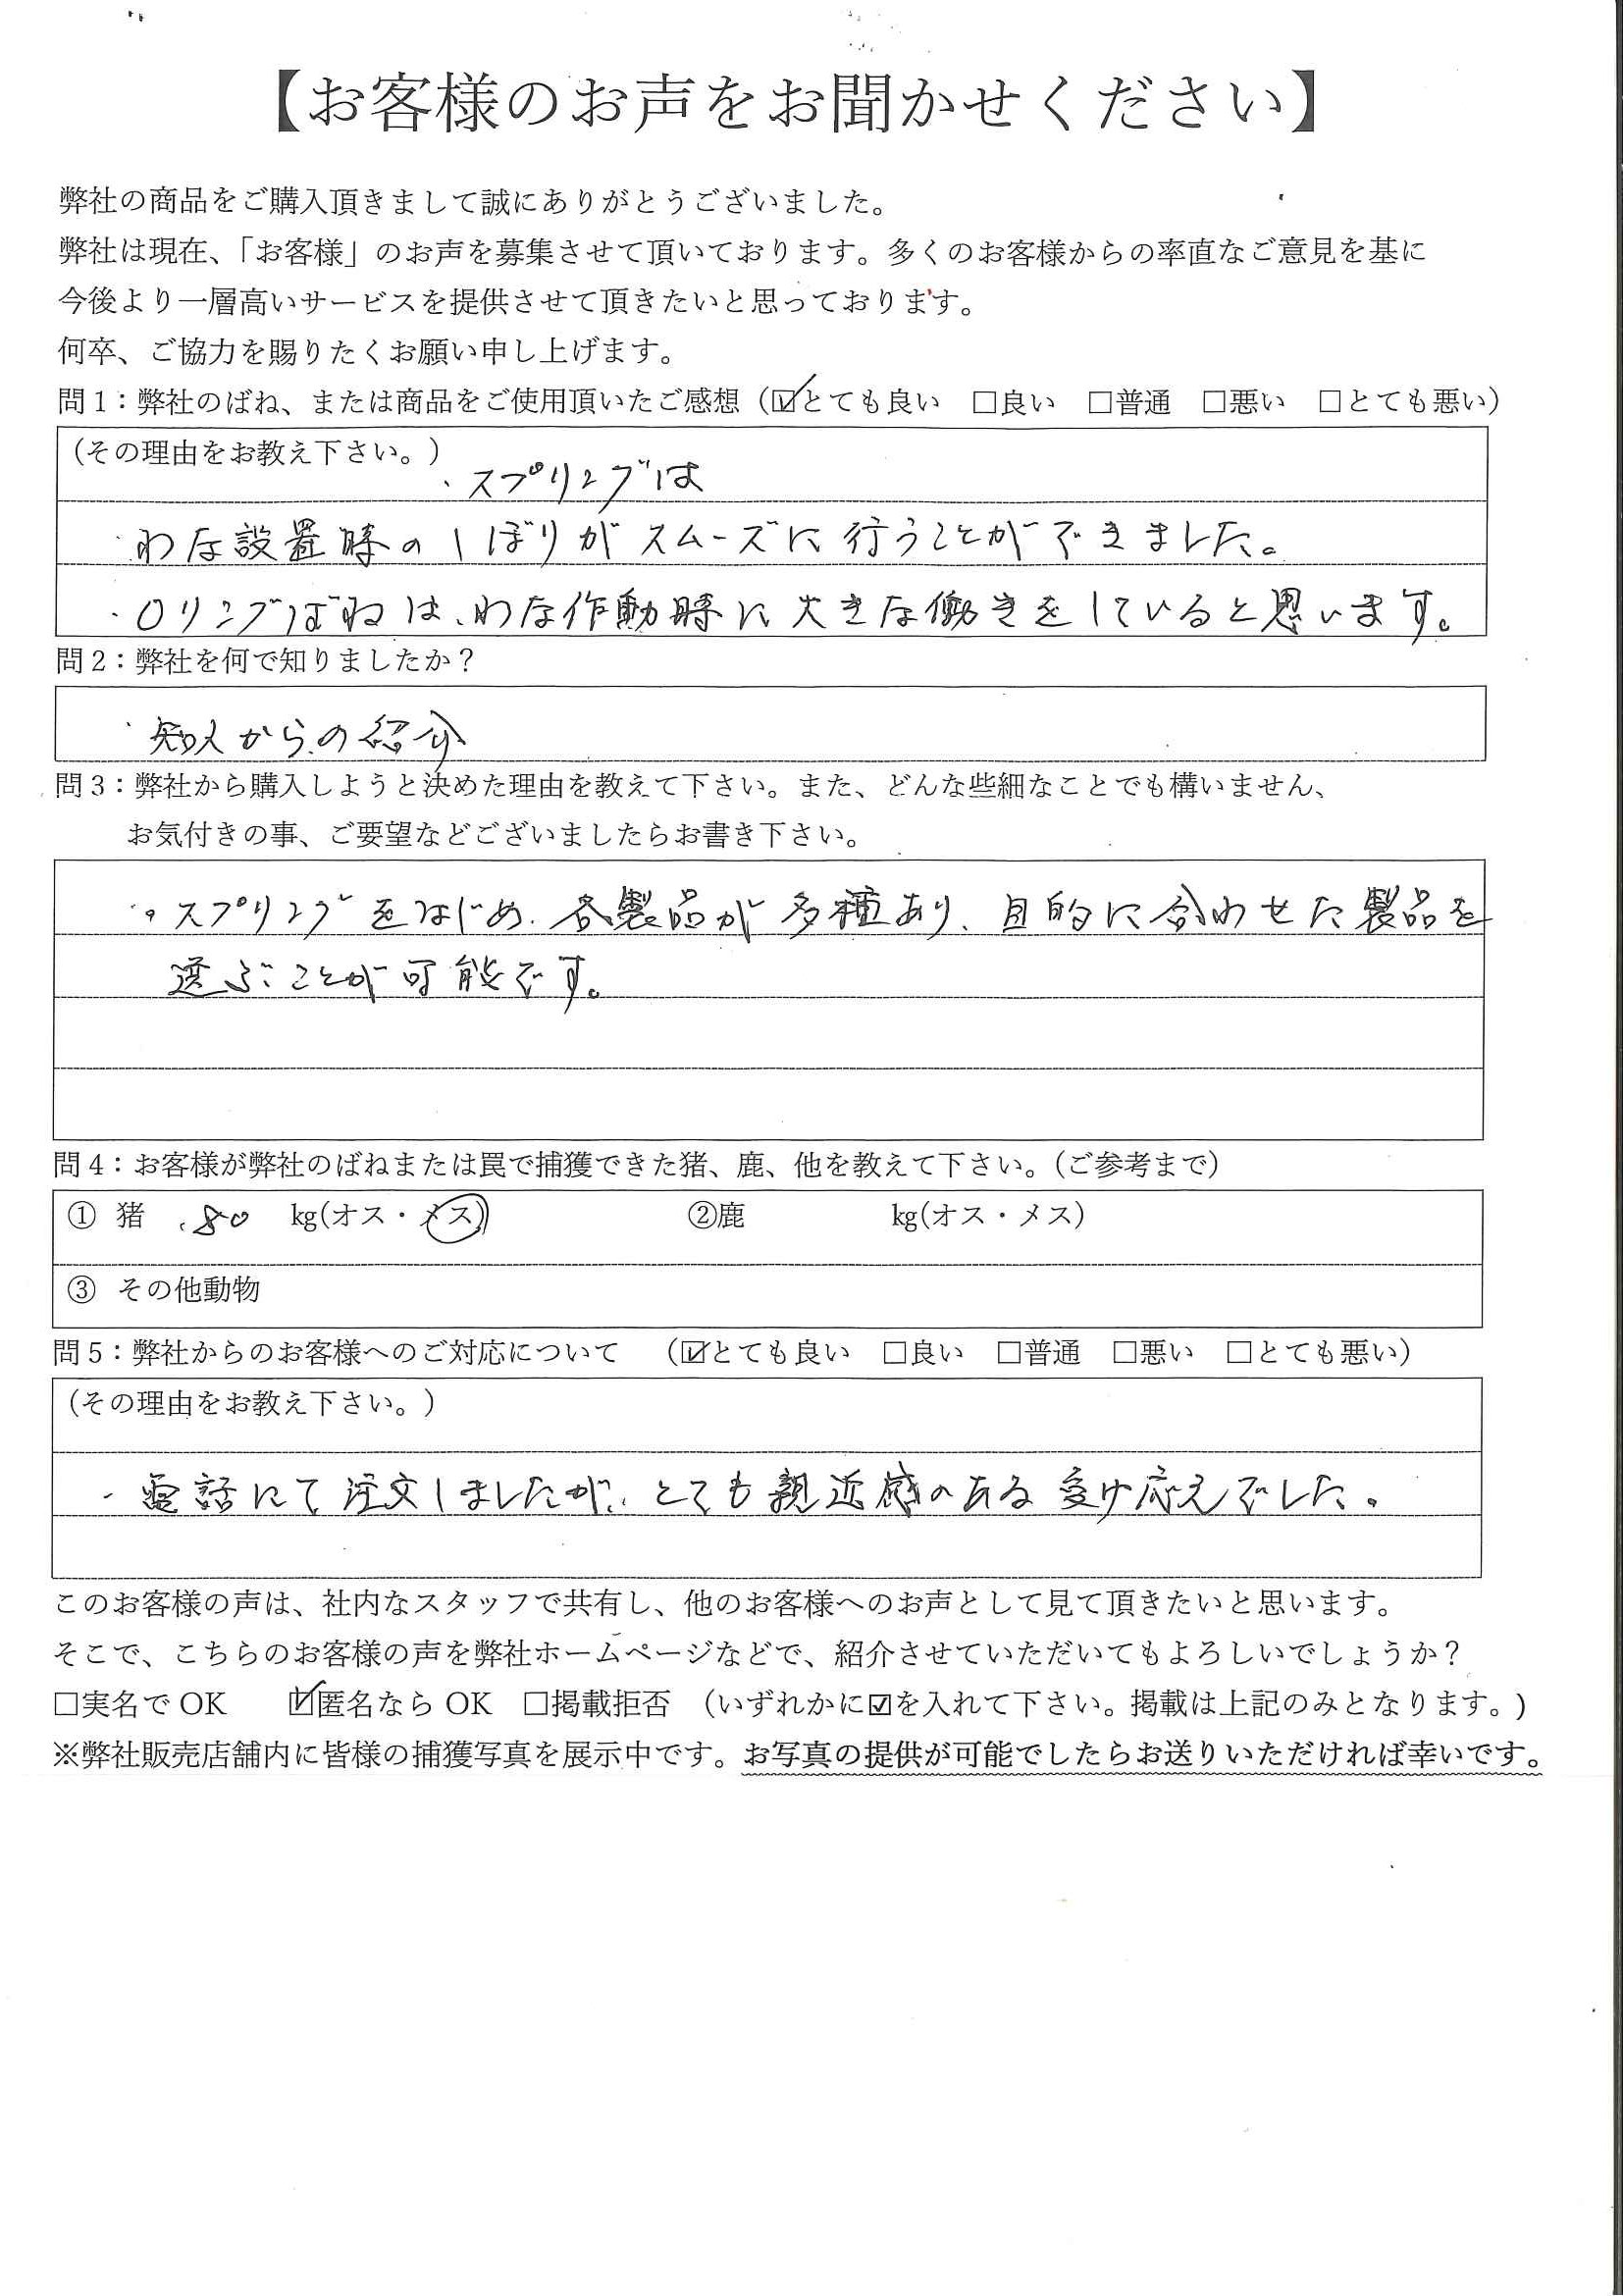 【お客様のお声をお聞かせください】
弊社の商品をご購入頂きまして誠にありがとうございました。
弊社は現在、「お客様」のお声を募集させて頂いております。多くのお客様からの率直なご意見を基に
今後より一層高いサービスを提供させて頂きたいと思っております。
何卒、ご協力を賜りたくお願い申し上げます。
問1：弊社のばね、または商品をご使用頂いたご感想（☑とても良い　□良い　□普通　□悪い　□とても悪い）
（その理由をお教え下さい。）
・スプリングは
わな設置時のしぼりがスムーズに行うことができました。
・Oリングばねは、わな作動時に大きな働きをしていると思います。
問2：弊社を何で知りましたか？
・知人からの紹介
問3：弊社から購入しようと決めた理由を教えて下さい。また、どんな些細なことでも構いません、
お気付きの事、ご要望などございましたらお書き下さい。
・スプリングをはじめ、各製品が多種あり、目的に合わせた製品を
選ぶことが可能です。
問4：お客様が弊社のばねまたは罠で捕獲できた猪、鹿、他を教えて下さい。（ご参考まで）
① 猪　80　kg(オス・メス)　②鹿　kg(オス・メス)
③ その他動物
問5：弊社からのお客様へのご対応について　（☑とても良い　□良い　□普通　□悪い　□とても悪い）
（その理由をお教え下さい。）
・電話にて注文しましたが、とても親近感のある受け応えでした。
このお客様の声は、社内なスタッフで共有し、他のお客様へのお声として見て頂きたいと思います。
そこで、こちらのお客様の声を弊社ホームページなどで、紹介させていただいてもよろしいでしょうか？
□実名でOK　☑匿名ならOK　□掲載拒否　（いずれかに☑を入れて下さい。掲載は上記のみとなります。）
※弊社販売店舗内に皆様の捕獲写真を展示中です。お写真の提供が可能でしたらお送りいただければ幸いです。